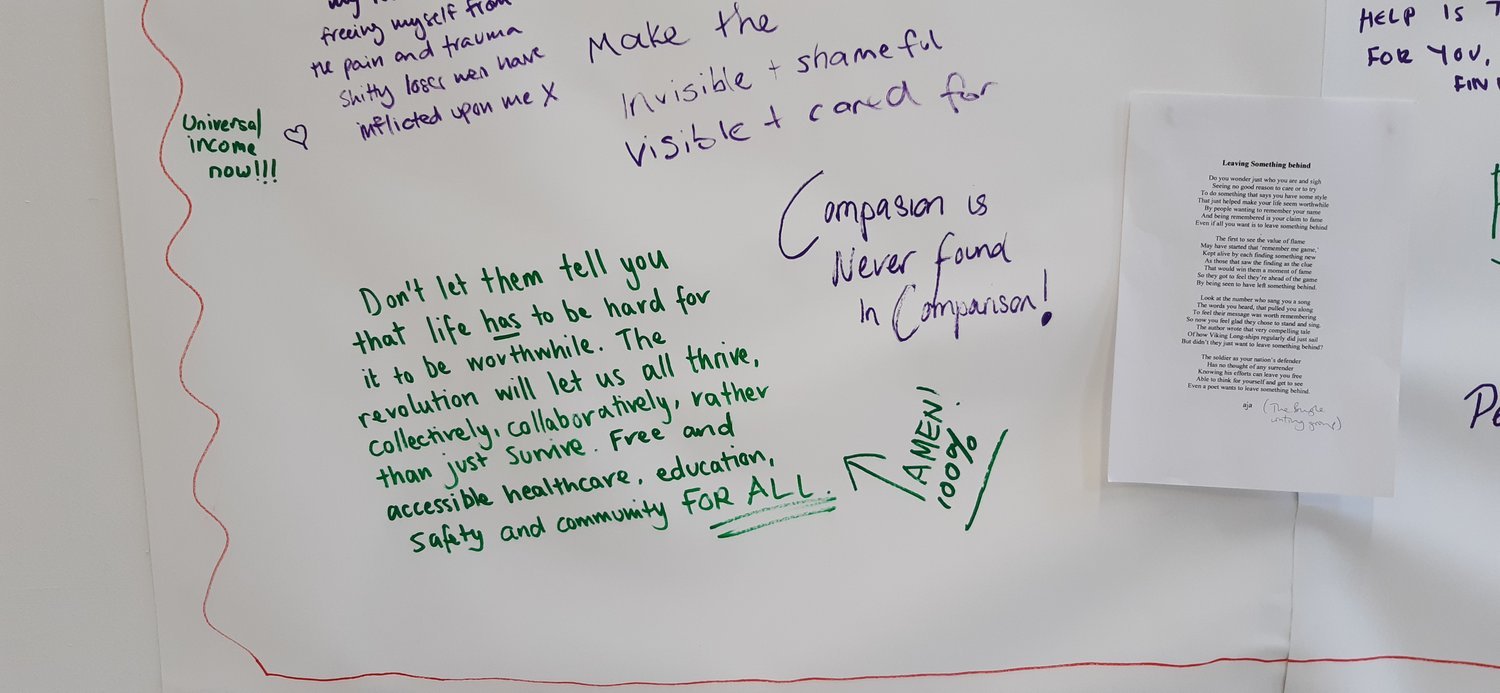 freeing myself from
the pain and trauma
shitty loser men have
inflicted upon me X
Universal
income
now!!!
Make the
Invisible + shameful
visible + cared for
Compasion is
Never found
In Comparison!
Don't let them tell you
that life has to be hard for
it to be worthwhile. The
revolution will let us all thrive,
collectively, collaboratively, rather
than just survive. Free and
accessible healthcare, education,
safety and community FOR ALL.
AMEN!
100%
HELP IS
FOR YOU,
Leaving Something behind
Do you wonder just who you are and sigh
Seeing no good reason to care or to try
To do something that says you have some style
That just helped make your life seem worthwhile
By people wanting to remember your name
And being remembered is your claim to fame
Even if all you want is to leave something behind
The first to see the value of flame
May have started that 'remember me game,'
Kept alive by each finding something new
As those that saw the finding as the clue
That would win them a moment of fame
So they got to feel they're ahead of the game
By being seen to have left something behind.
Look at the number who sang you a song
The words you heard, that pulled you along
To feel their message was worth remembering
So now you feel glad they chose to stand and sing.
The author wrote that very compelling tale
Of how Viking Long-ships regularly did just sail
But didn't they just want to leave something behind?
The soldier as your nation's defender
Has no thought of any surrender
Knowing his efforts can leave you free
Able to think for yourself and get to see
Even a poet wants to leave something behind.
aja (The
writing group)